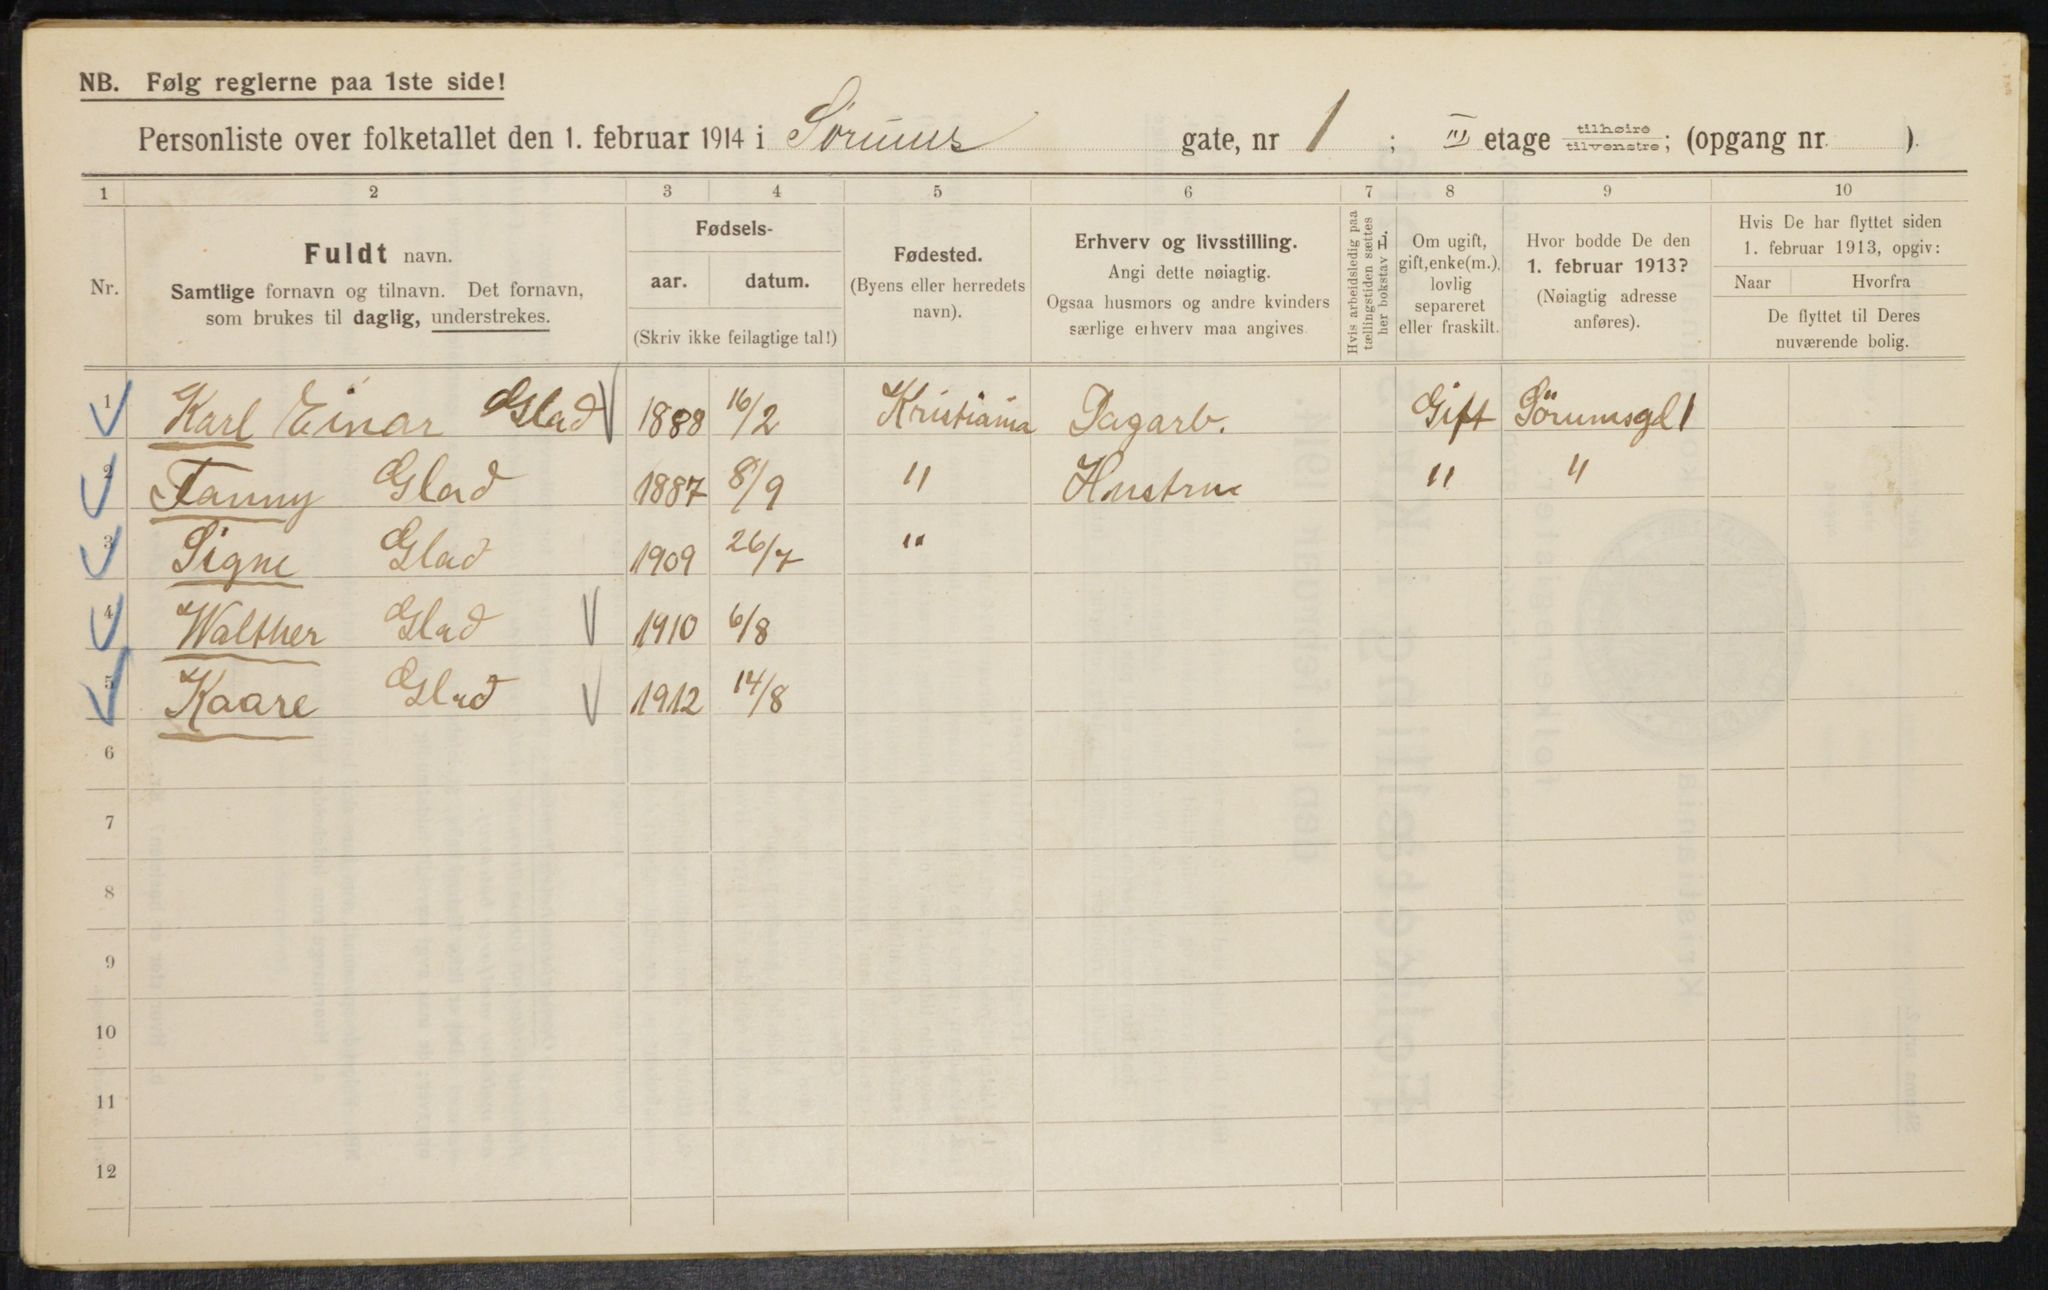 NB. Følg reglerne paa 1ste side!
Personliste over folketallet den 1. februar 1914 i Sørums gate, nr 1; III etage tilhøire tilvenstre; (opgang nr. ).
1 2 3 4 5 6 7 8 9 10
Nr.
Fuldt navn.
Samtlige fornavn og tilnavn. Det fornavn,
som brukes til daglig, understrekes.
Fødsels-
aar. datum.
(Skriv ikke feilagtige tal!)
Fødested.
(Byens eller herredets
navn).
Erhverv og livsstilling.
Angi dette nøiagtig.
Ogsaa husmors og andre kvinders
særlige erhverv maa angives.
Hvis arbeidsledig paa
tællingstiden sættes
her bokstav L.
Om ugift,
gift, enke(m.),
lovlig
separeret
eller fraskilt.
Hvor bodde De den
1. februar 1913?
(Nøiagtig adresse
anføres).
Hvis De har flyttet siden
1. februar 1913, opgiv:
Naar Hvorfra
De flyttet til Deres
nuværende bolig.
1 Karl Einar Glad 1888 16/2 Kristiania Dagarb. Gift Sörumsgd 1
2 Fanny Glad 1887 8/9 " Hustru " "
3 Signe Glad 1909 26/7 "
4 Walther Glad 1910 6/8
5 Kaare Glad 1912 14/8
6
7
8
9
10
11
12